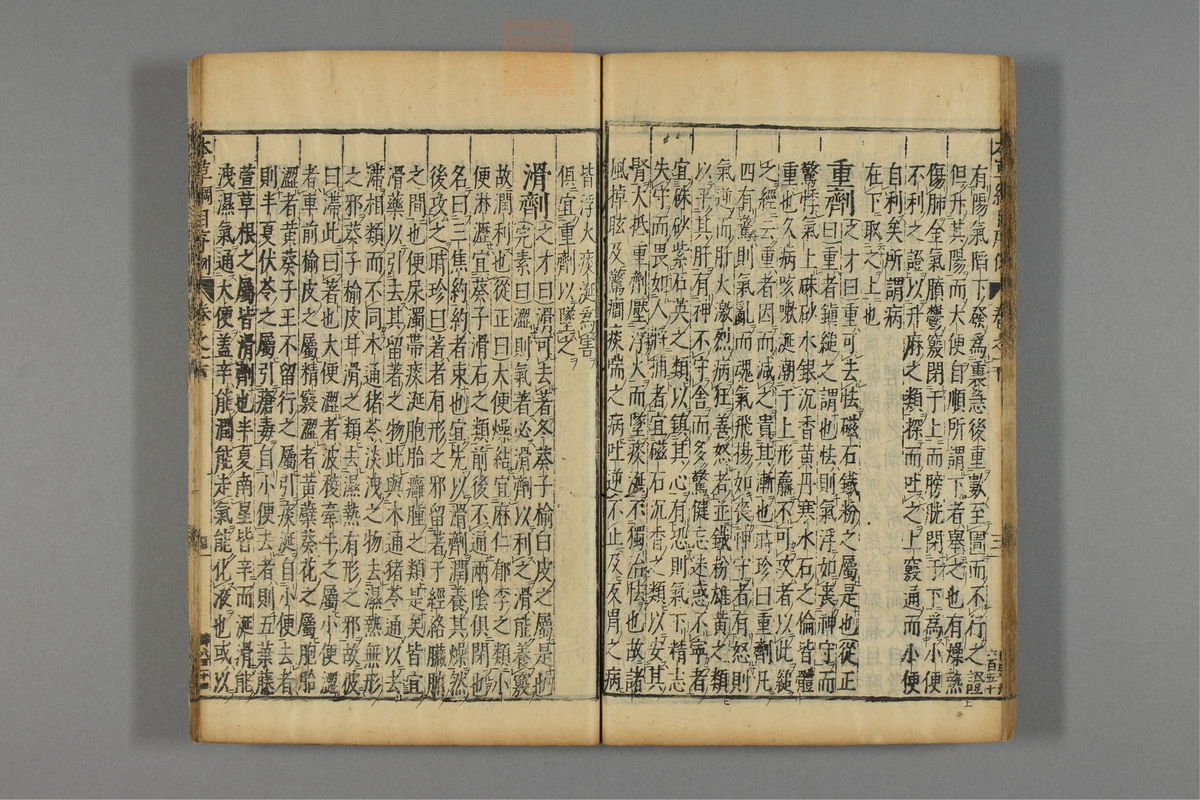 有陽氣陷下發為裏急後重數至圊而不行之證
但升其陽而大便自順所謂下者舉之也有燥熱
傷肺金氣膹鬱竅閉于上而膀胱閉于下為小便
不利之證以升麻之類探而吐之上竅通而小便
自利矣所謂病
在下取之上也
重劑之才曰重可去怯磁石鐵粉之屬是也從正
曰重者鎮縋之謂也怯則氣浮如喪神守而
驚悸氣上硃砂水銀沉香黃丹寒水石之倫皆體
重也久病咳嗽涎潮于上形羸不可攻者以此縋
之經云重者因而減之貴其漸也時珍曰重劑凡
四有驚則氣亂而魂氣飛揚如喪神守者有怒則
氣逆而肝火激烈病狂善怒者並鐵粉雄黃之類
以平其肝有神不守舍而多驚健忘迷惑不寧者
宜硃砂紫石英之類以鎮其心有恐則氣下精志
失守而畏如人將捕者宜磁石沉香之類以安其
腎大抵重劑壓浮火而墜痰涎不獨治怯也故諸
風掉眩及驚癇痰喘之病吐逆不止及反胃之病
皆浮火痰涎為害
俱宜重劑以墜之
滑劑之才曰滑可去著冬葵子榆白皮之屬是也
完素曰澀則氣著必滑劑以利之滑能養竅
故潤利也從正曰大便燥結宜麻仁郁李之類小
便淋瀝宜葵子滑石之類前後不通兩陰俱閉也
名曰三焦約約者束也宜先以滑劑潤養其燥然
後攻之時珍曰著者有形之邪留著于經絡臟腑
之間也便尿濁帶痰涎胞胎癰腫之類是矣皆宜
滑藥以引去其留著之物此與木通豬苓通以去
滯相類而不同木通豬苓淡洩之物去濕熱無形
之邪葵子榆皮耳滑之類去濕熱有形之邪故彼
曰滯此曰著也大便澀者波稜牽牛之屬小便澀
者車前榆皮之屬精竅澀者黃蘗葵花之屬胞胎
澀者黃葵子王不留行之屬引痰涎自小便去者
則半夏伏苓之屬引瘡毒自小便去者則五葉藤
萱草根之屬皆滑劑也半夏南星皆辛而涎滑能
洩濕氣通大便蓋辛能潤能走氣能化液也或以
本草綱目序例 卷之一 四